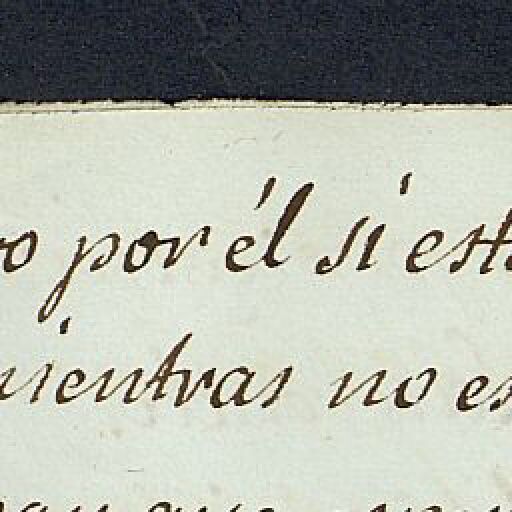 o por él si est
mientras no es